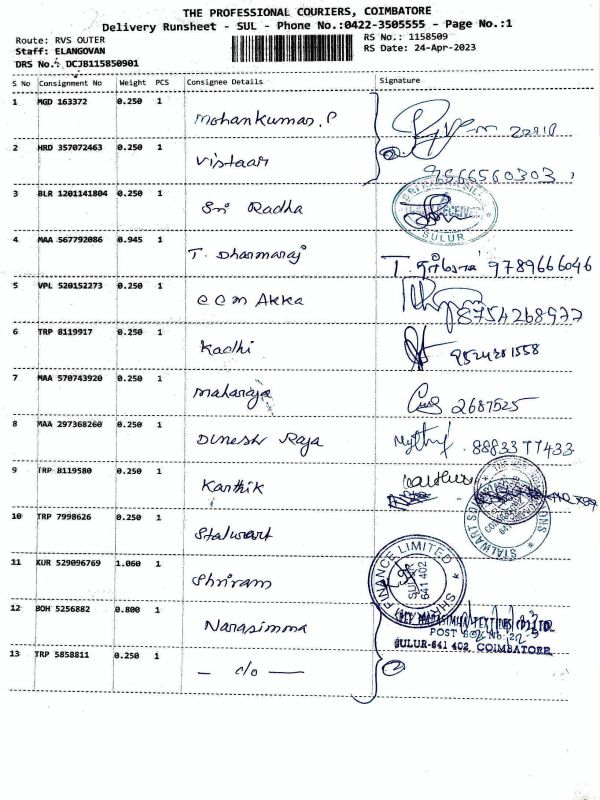 THE PROFESSIONAL COURIERS, COIMBATORE
Delivery Runsheet - SUL - Phone No.:0422-3505555 - Page No.:1
Route: RVS OUTER
RS No.: 1158509
Staff: ELANGOVAN
RS Date: 24-Apr-2023
DRS No.: DCJB115850901
S No Consignment No Weight PCS Consignee Details Signature
1 MGD 163372 0.250 1 Mohankumar. P
2 HRD 357072463 0.250 1 Vistaar 9566560303
3 BLR 1201141804 0.250 1 Sri Radha
SULUR
4 MAA 567792086 0.945 1 T. Dharmaraj T. 9789666046
5 VPL 520152273 0.250 1 CCM AKKA 8754268977
6 TRP 8119917 0.250 1 Kadhi
7 MAA 570743920 0.250 1 Maharaja 2687525
8 MAA 297368260 0.250 1 Dinesh Raja 8883377433
9 TRP 8119580 0.250 1 Karthik
10 TRP 7998626 0.250 1 Stalwart
11 KUR 529096769 1.060 1 Shriram
FINANCE LIMITED
SULUR
641 402
12 BOH 5256882 0.800 1 Narasimma
POST BOX No.
SULUR-641 402 COIMBATORE
13 TRP 5858811 0.250 1 - do -